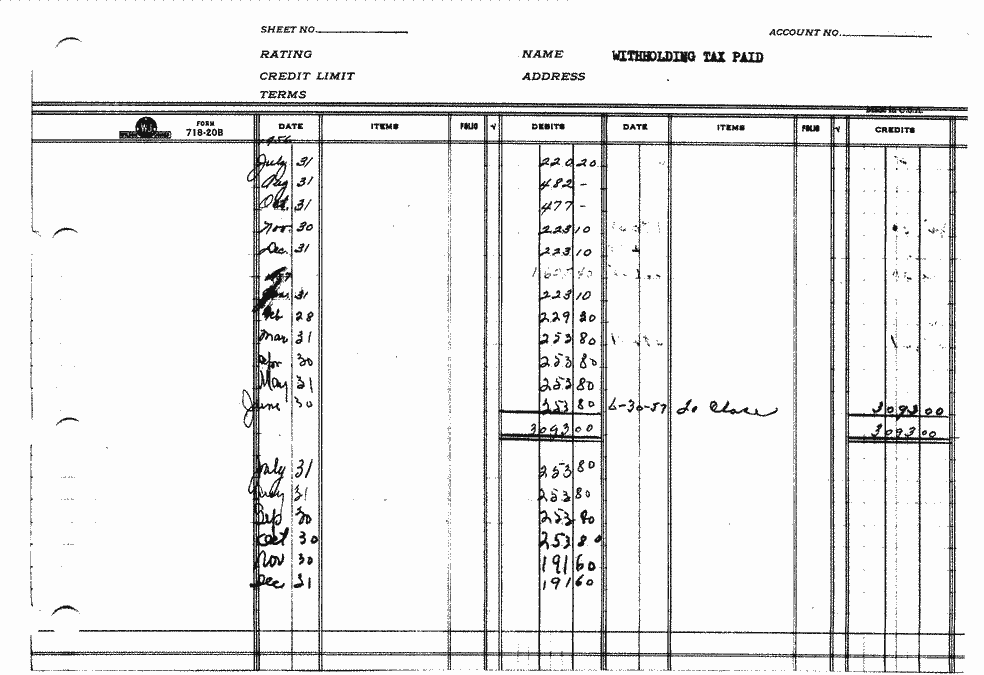 SHEET NO.
ACCOUNT NO.
RATING NAME WITHHOLDING TAX PAID
CREDIT LIMIT ADDRESS
TERMS
MADE IN U.S.A.
W-J FORM 718-20B DATE ITEMS FOLIO √ DEBITS DATE ITEMS FOLIO √ CREDITS
1956
July 31 220 20
Aug 31 482 -
Oct. 31 477 -
Nov. 30 223 10
Dec. 31 223 10
1957 1625 40
Jan. 31 223 10
Feb 28 229 30
Mar 31 253 80
Apr 30 253 80
May 31 253 80
June 30 253 80 6-30-57 To Close 3093 00
3093 00 3093 00
July 31 253 80
Aug 31 253 80
Sep 30 253 80
Oct 30 253 80
Nov 30 191 60
Dec 31 191 60